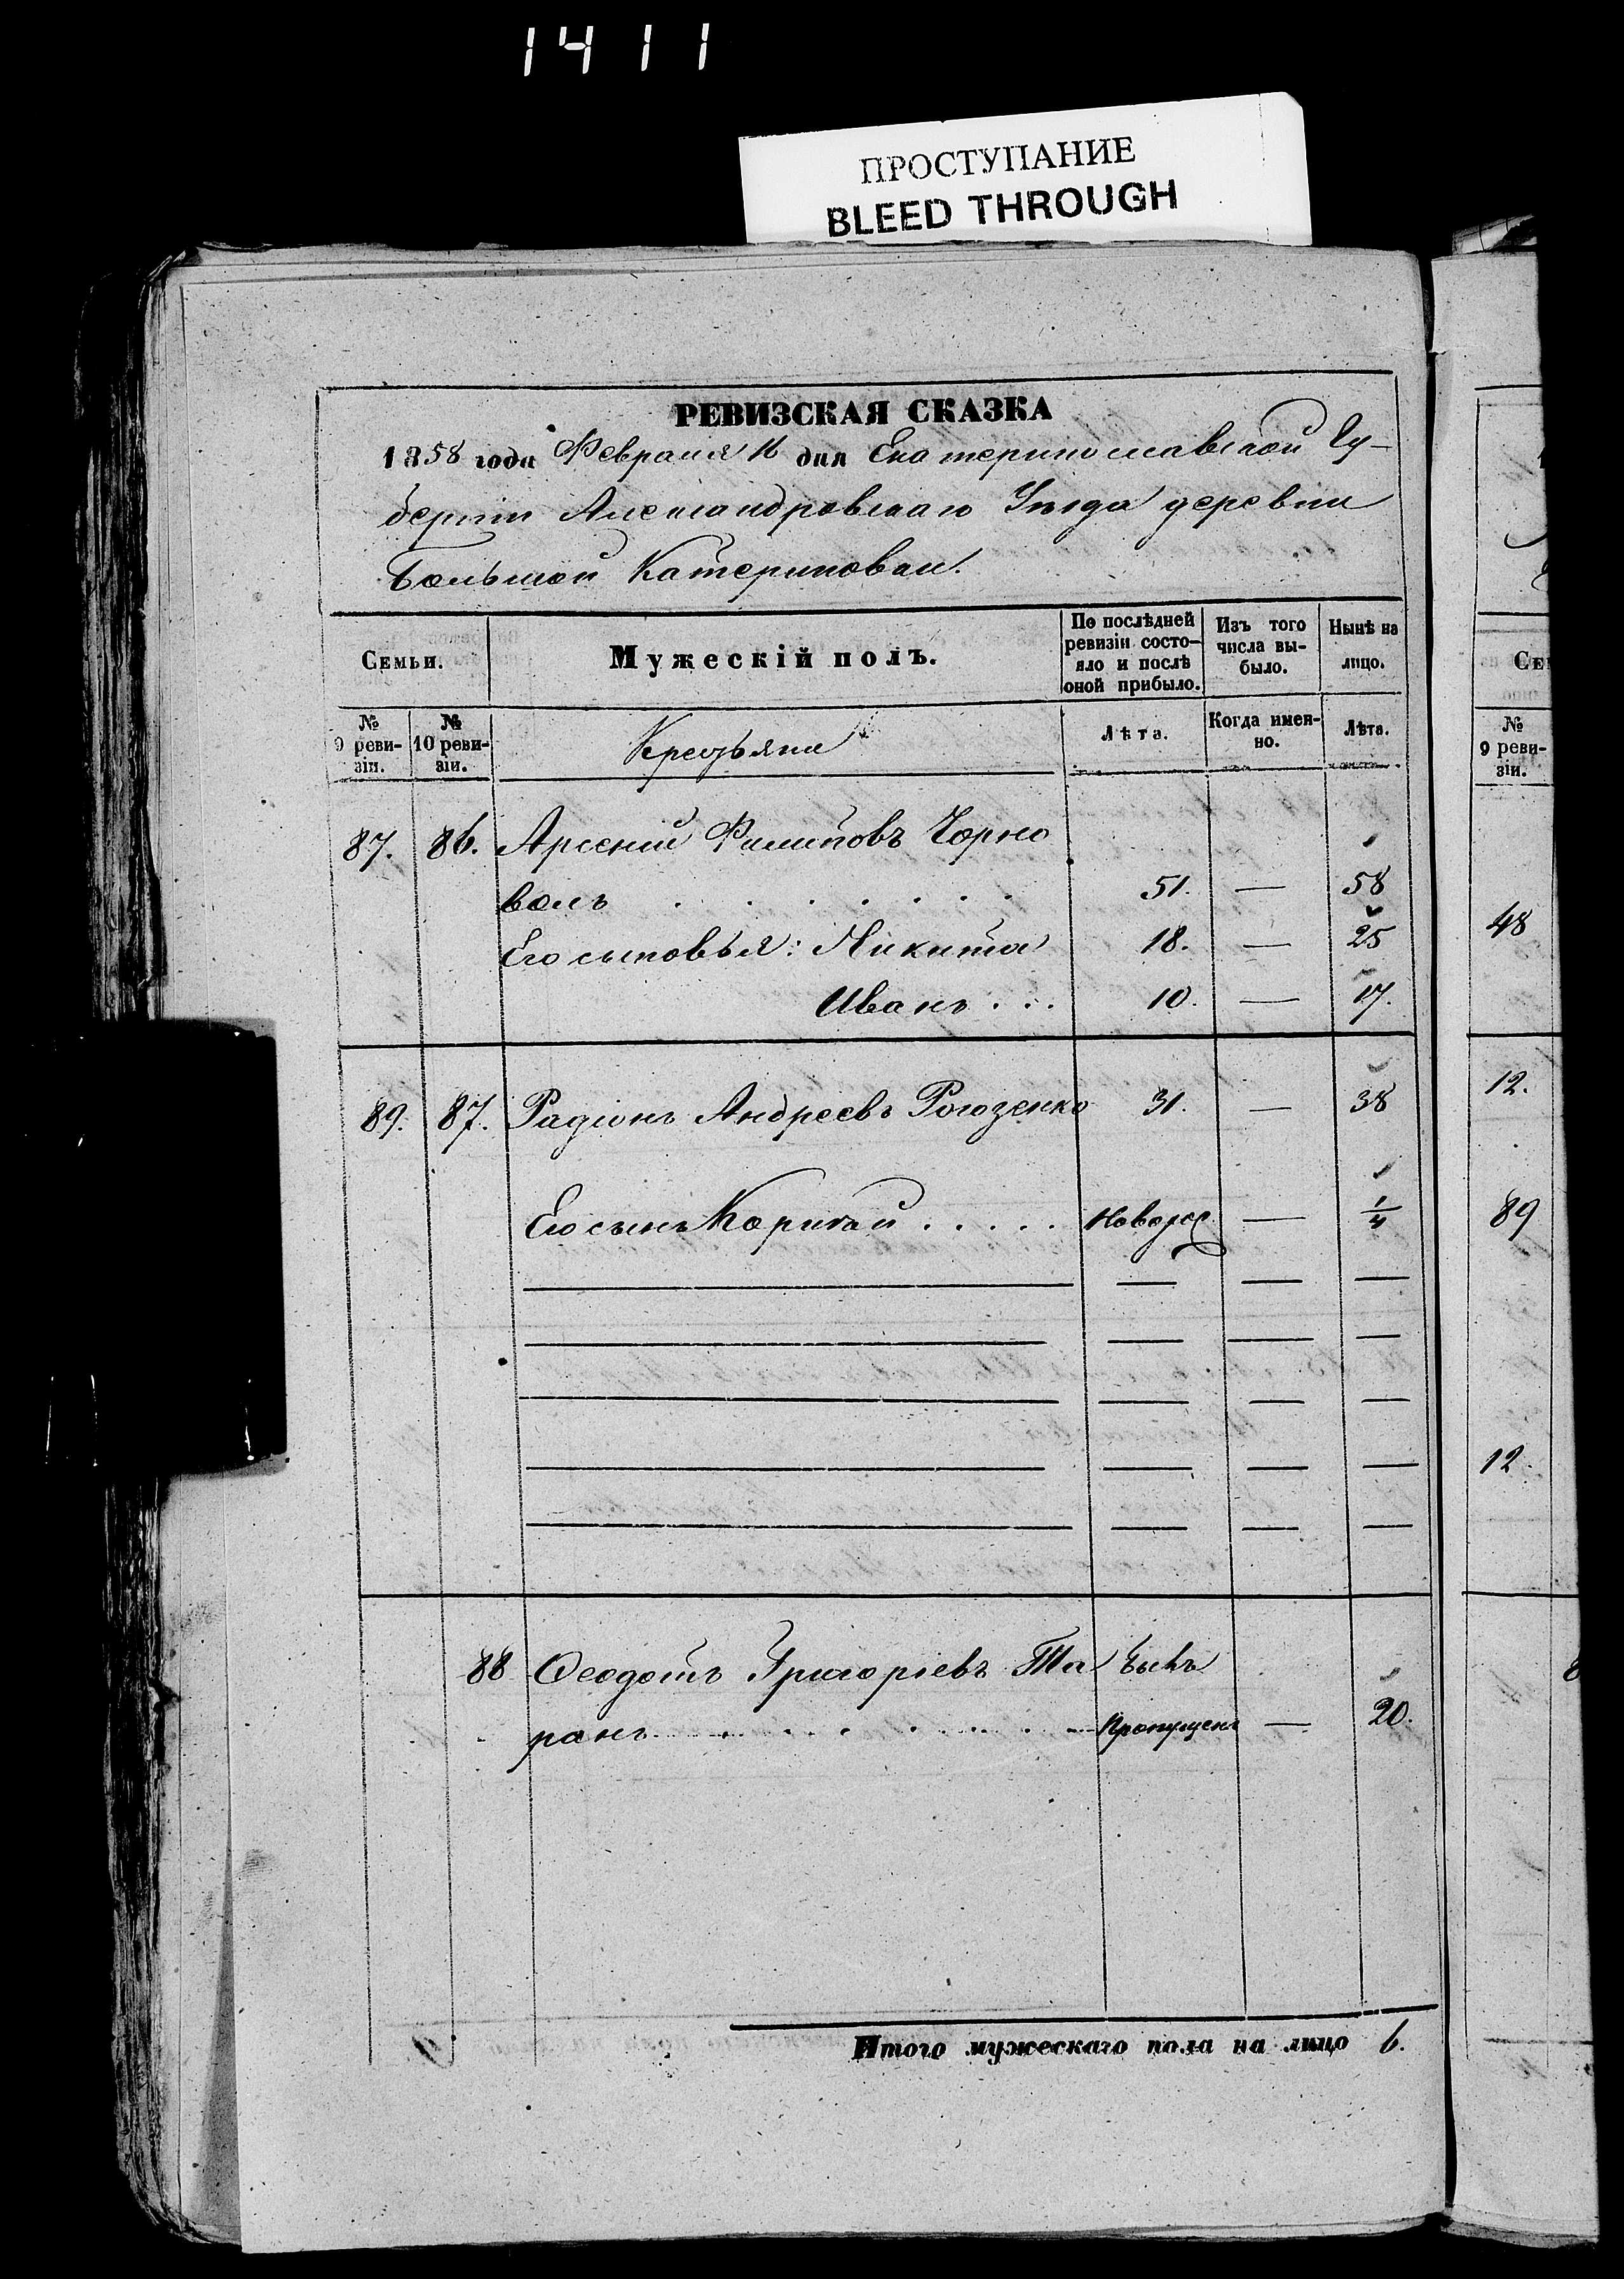 1411
ПРОСТУПАНИЕ
BLEED THROUGH
РЕВИЗСКАЯ СКАЗКА
1858 года Февраля 16 дня Екатеринославской Гу-
берніи Александровскаго Уѣзда деревни
Большой Катериновки.
Семьи.
Мужескій полъ.
По послѣдней ревизіи состо-
яло и послѣ оной прибыло.
Изъ того числа вы-
было.
Нынѣ на лицо.
№ 9 реви-
зіи.
№ 10 реви-
зіи.
Крестьяни
Лѣта.
Когда имен-
но.
Лѣта.
87. 86. Арсеній Филиповъ Чорно
волъ 51. — 58
Его сыновья: Никита 18. — 25
Иванъ 10. — 17.
89. 87. Радіонъ Андреевъ Рогозенко 31. — 38
Его сынъ Новорож — 1/4
88 Ѳеодотъ Григоріевъ Та Былъ
ранъ Пропущенъ — 20.
Итого мужескаго пола на лицо 6.
Се
№
9 реви-
зіи.
48
12.
89
12